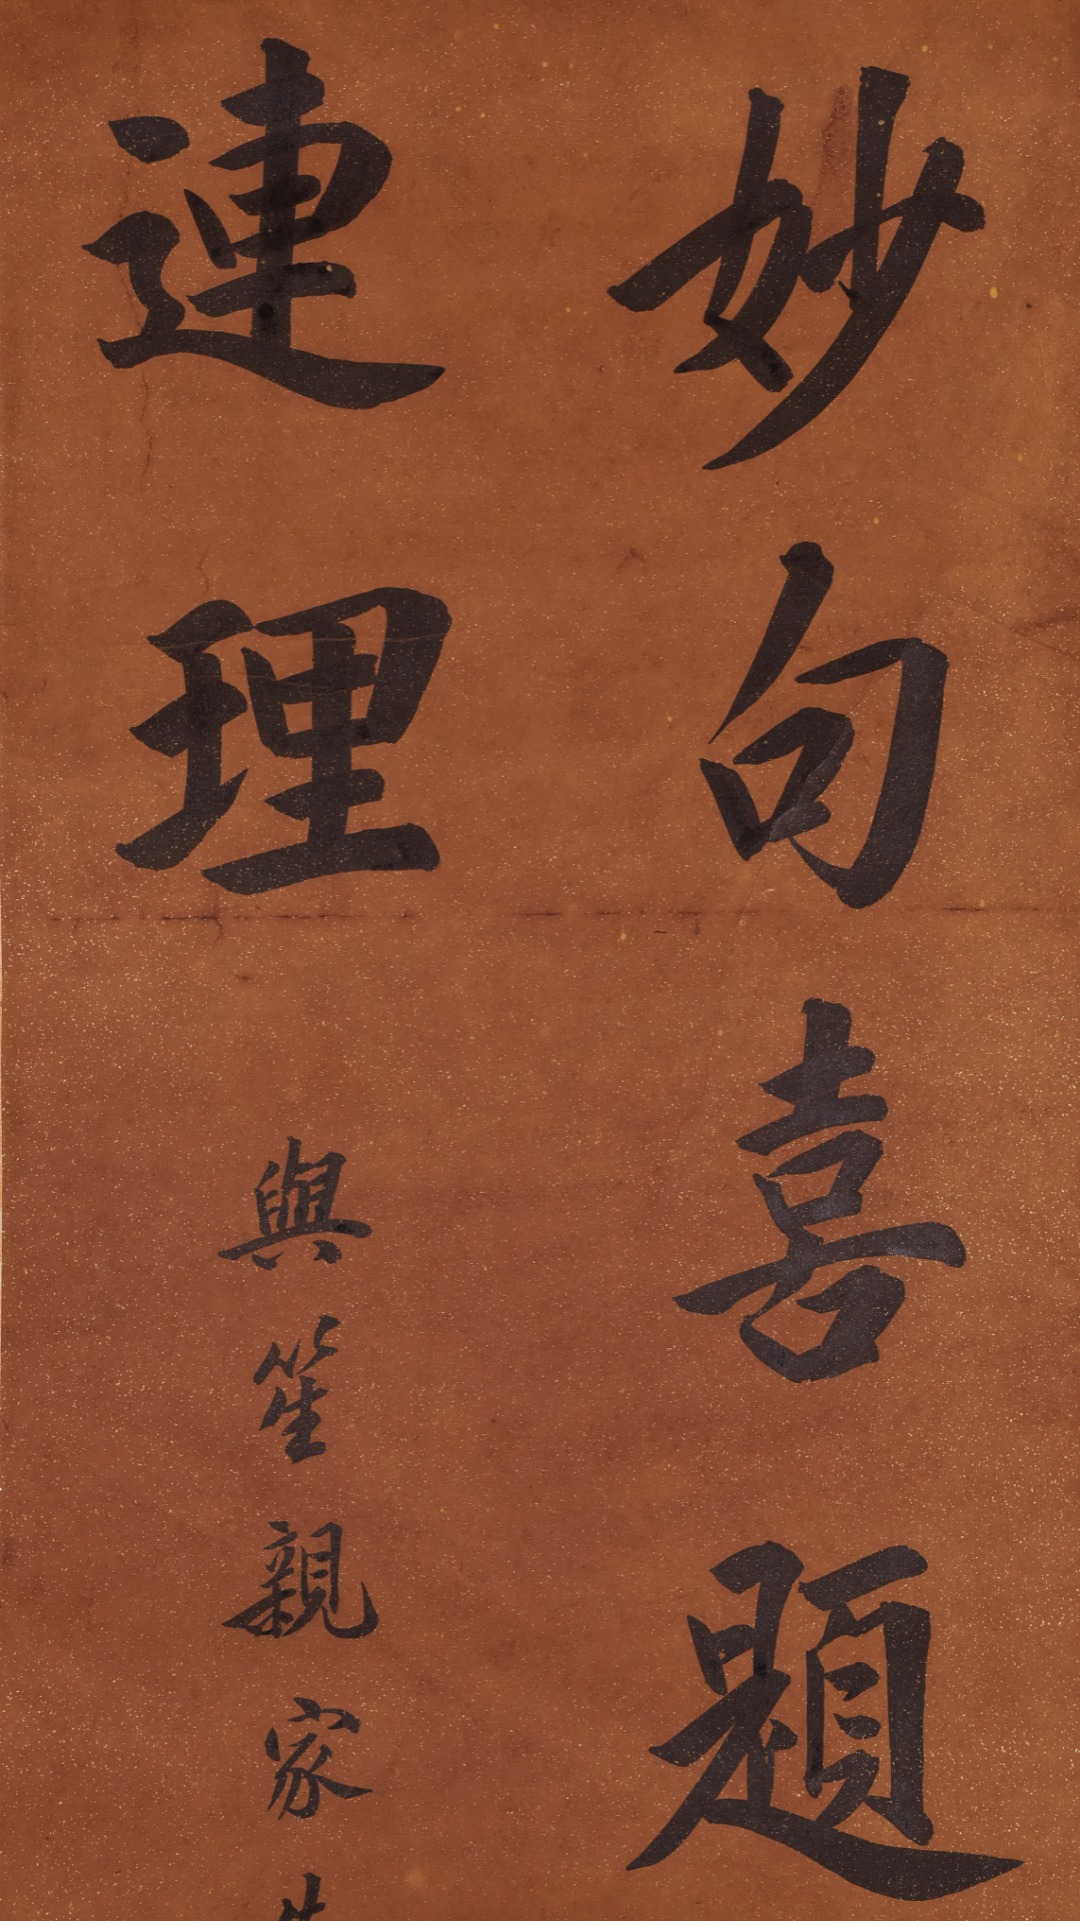 妙句喜題
連理
與笙親家